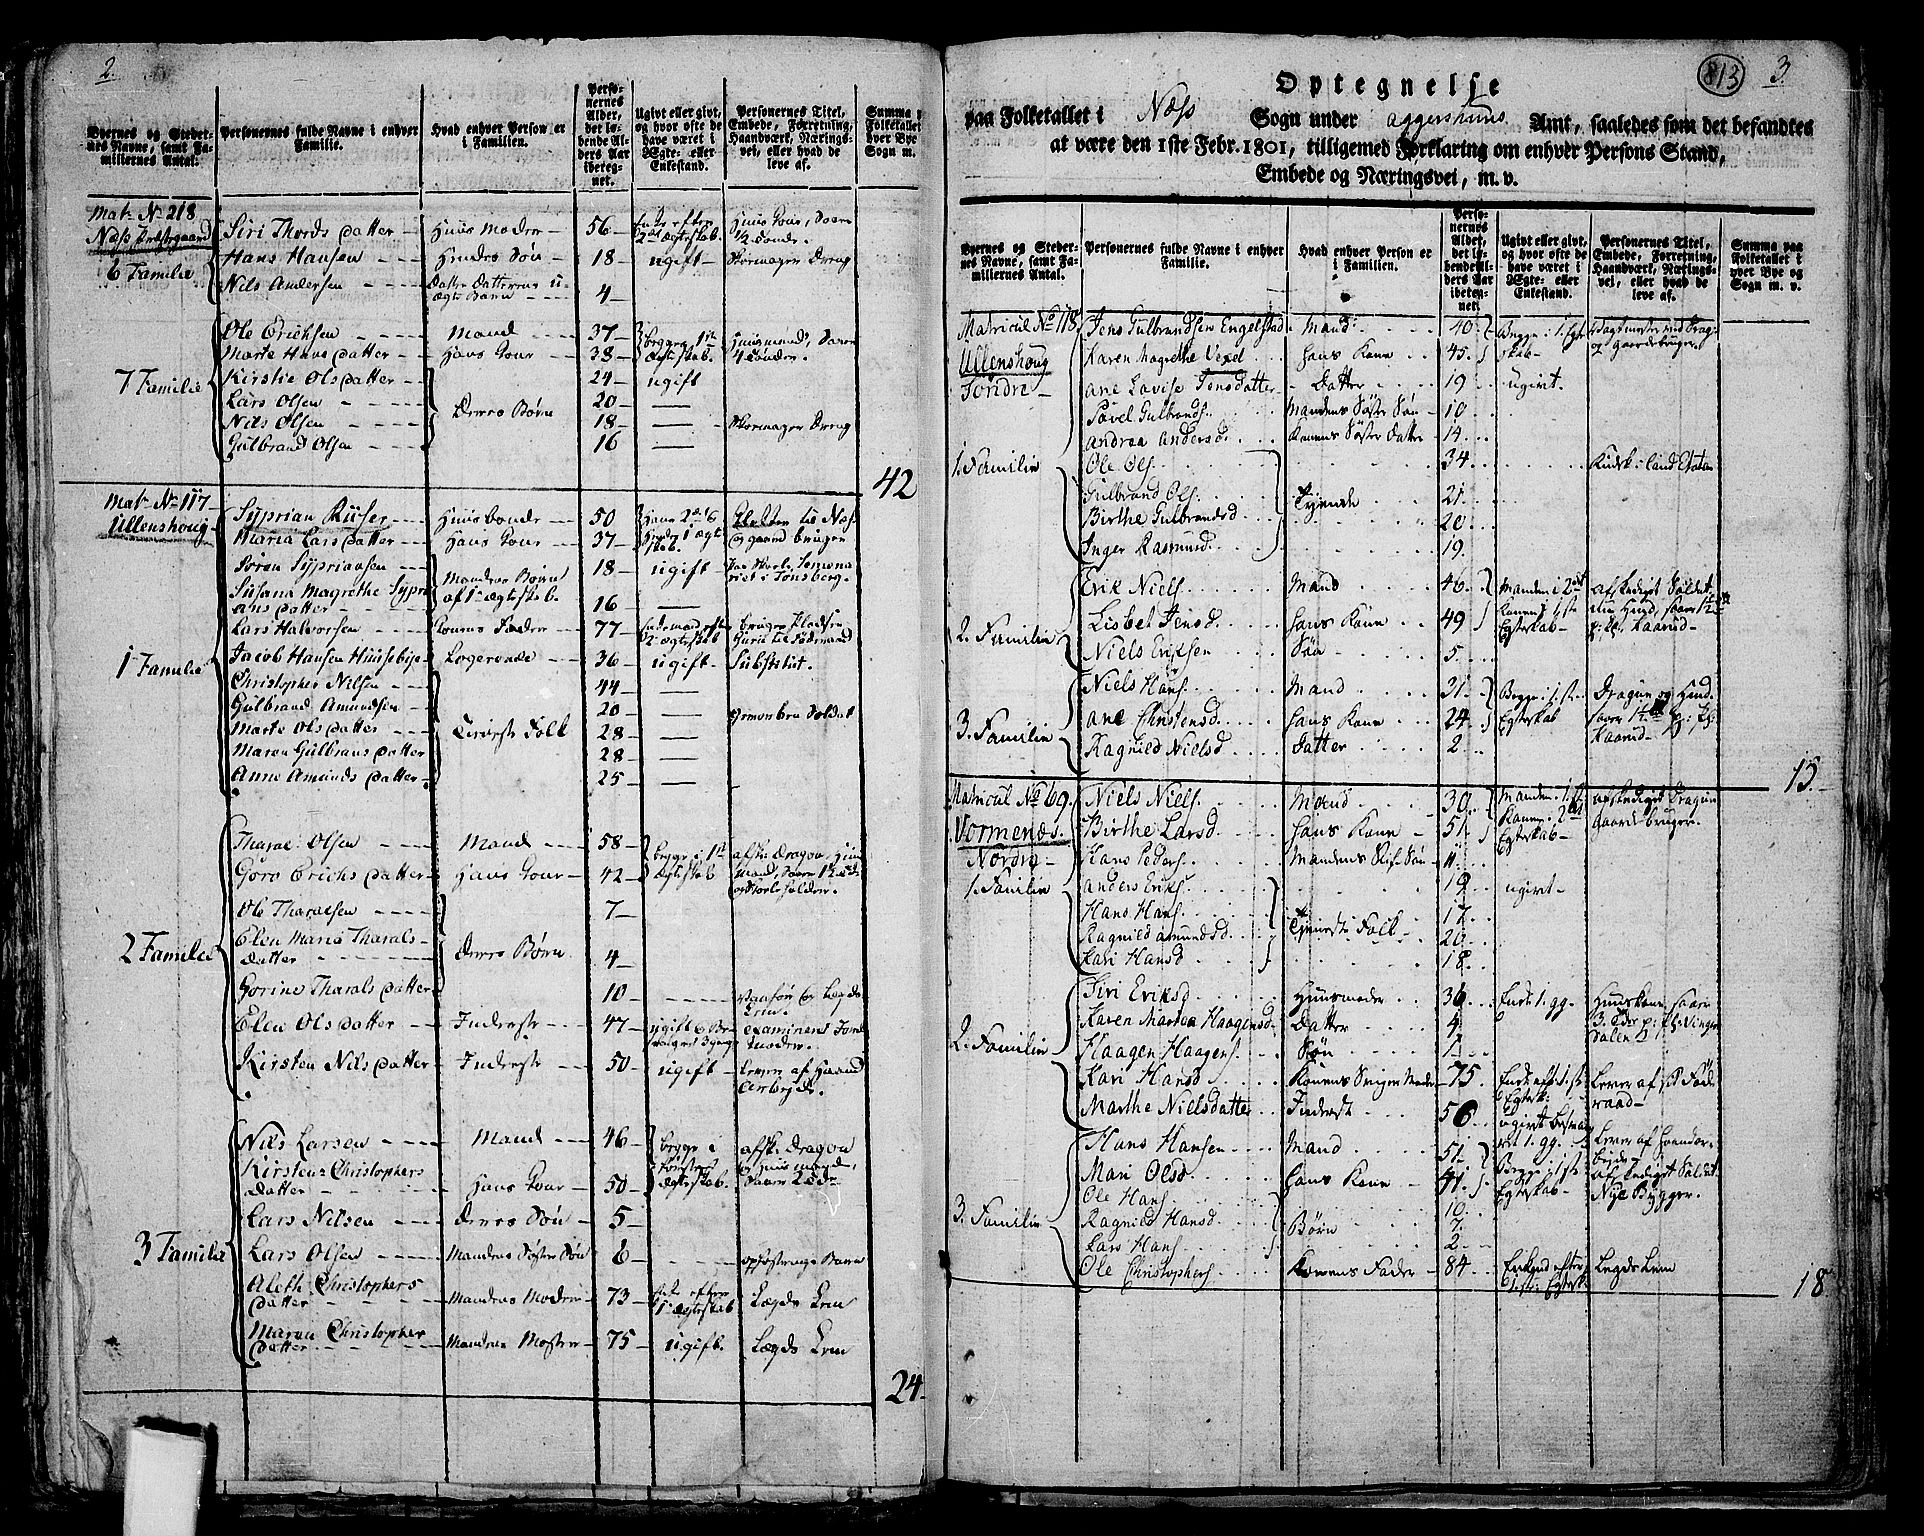 2.
Byernes og Stedernes Navne, samt Familiernes Antal.
Personernes fulde Navne i enhver Familie.
Hvad enhver Person er i Familien.
Personernes Alder, det løbende Alders Aar iberegnet.
Ugivt eller givt, og hvor ofte de have været i Ægte- eller Enkestand.
Personernes Titel, Embede, Forretning, Haandværk, Næringsvei, eller hvad de leve af.
Summa paa Folketallet i hver Bye og Sogn m. v.
Matr No 218
Næss Præstegaard
6 Familie
Siri Thords datter Huus Moder 56 Enke efter 2det ægteskab.
Hans Hansen Hendes Søn 18 ugift
Nils Andersen 4
7 Familie
Ole Erichsen Mand 37 begge i 1ste ægteskab. Huusmand
Marte Hans datter Hans Kone 38
Kirstie Ols datter 24 ugift
Lars Olsen Deres Børn 20
Nils Olsen 18
Gulbrand Olsen 16
42
Mat No 117
Ullenshoug
1 Familie
Syprian Riiser Huusbonde 50
Maria Lars datter Hans Kone 37
Søren Syprianssen 18 ugift
Susana Magrethe Syprians datter Mandens Børn af 1 ægteskab. 16
Lars Halvorsen Konens Fader 77
Jacob Hansen Huusebije Logerende 36 ugift Substitut.
Christopher Nilsen 44
Gulbrand Amundsen 20
Marte Ols datter Tieniste Folk 28
Maren Gulbrans datter 28
Anne Amunds datter 25
2 Familie
Tharal Olsen Mand 58 begge i 1st ægteskab
Goro Erichs datter Hans Kone 42
Ole Tharalsen 7
Elen Maria Tharals datter Deres Børn 4
Gorine Tharals datter 10
Elen Ols datter Inderste 47
Kirsten Nils datter Inderste 50 ugift Lever af Haand Arbejde.
3 Familie
Nils Larsen Mand 46 begge i første ægteskab. afsk: Dragon
Kirsten Christophers datter Hans Kone 50
Lars Nilsen Deres Søn 5
Lars Olsen Mandens Søster Søn 6 opfostrings Barn
Aleth Christophers datter Mandens Moder 73 Enke efter 1ste ægteskab Lægds Lem
Maren Christopher datter Mandens Moster 75 ugift. Lægds Lem
24
813 3.
Optegnelse
paa Folketallet i Næss Sogn under Aggershuus Amt, saaledes som det befandtes
at være den 1ste Febr. 1801, tilligemed Forklaring om enhver Persons Stand,
Embede og Næringsvei, m. v.
Byernes og Stedernes Navne, samt Familiernes Antal.
Personernes fulde Navne i enhver Familie.
Hvad enhver Person er i Familien.
Personernes Alder, det løbende Alders Aar iberegnet.
Ugivt eller givt, og hvor ofte de have været i Ægte- eller Enkestand.
Personernes Titel, Embede, Forretning, Haandværk, Næringsvei, eller hvad de leve af.
Summa paa Folketallet i hver Bye og Sogn m. v.
Matricul No 118
Ullenshoug Søndre
1. Familie
Jens Gulbrandsen Engelstad Mand 40 Begge i 1. Egteskab og Gaardbruger.
Karen Magrethe Vexel Hans Kone 45
Ane Lovise Jensdatter Datter 19 ugivt.
Povel Gulbrands. Mandens Søster Søn 10
Andrea Andersd. Konens Søster Datter 14
Ole Ols. 34
Gulbrand Ols. Tjenende 21
Birthe Gulbrandsd 20
Inger Rasmusd. 19
2. Familie
Erik Niels. Mand 46 Manden i 2det afskediget Soldat
Lisbet Jensd. Hans Kone 49 Konen i 1ste Egteskab
Niels Eriksen Søn 5
3. Familie
Niels Hans. Mand 31 Begge i 1ste Egteskab
Ane Christensd. Hans Kone 24
Ragnild Nielsd Datter 2
15.
Matricul No 69.
Vormenæs. Nordre
1. Familie
Niels Niels. Mand 30 Manden i 1st Konen i 2det Egteskab afskediget Dragon Gaardbruger.
Birthe Larsd. Hans Kone 51
Hans Peders. Mandens Stif Søn 11
Anders Eriks. 19 ugivt
Hans Hans. Tjeniste Folk 17
Ragnild Amundsd 20
Kari Hansd 18
2. Familie
Siri Eriksd Huusmoder 36 Enke 1. gg.
Karen Marthea Haagensd. Datter 4
Haagen Haagens. Søn 1
Kari Hansd Konens Sviger Moder 75 Enke efter 1ste Egtesk: Lever af sit Føderaad
Marthe Nielsdatter Inderst 56
3. Familie
Hans Hansen Mand 51 Begge i 1ste Egteskab afskediget Soldat Nye Bygger.
Mari Olsd Hans Kone 41
Ole Hans. 10
Ragnild Hansd Børn 7
Lars Hans. 2
Ole Christophers. Konens Fader 84 Legds Lem
18